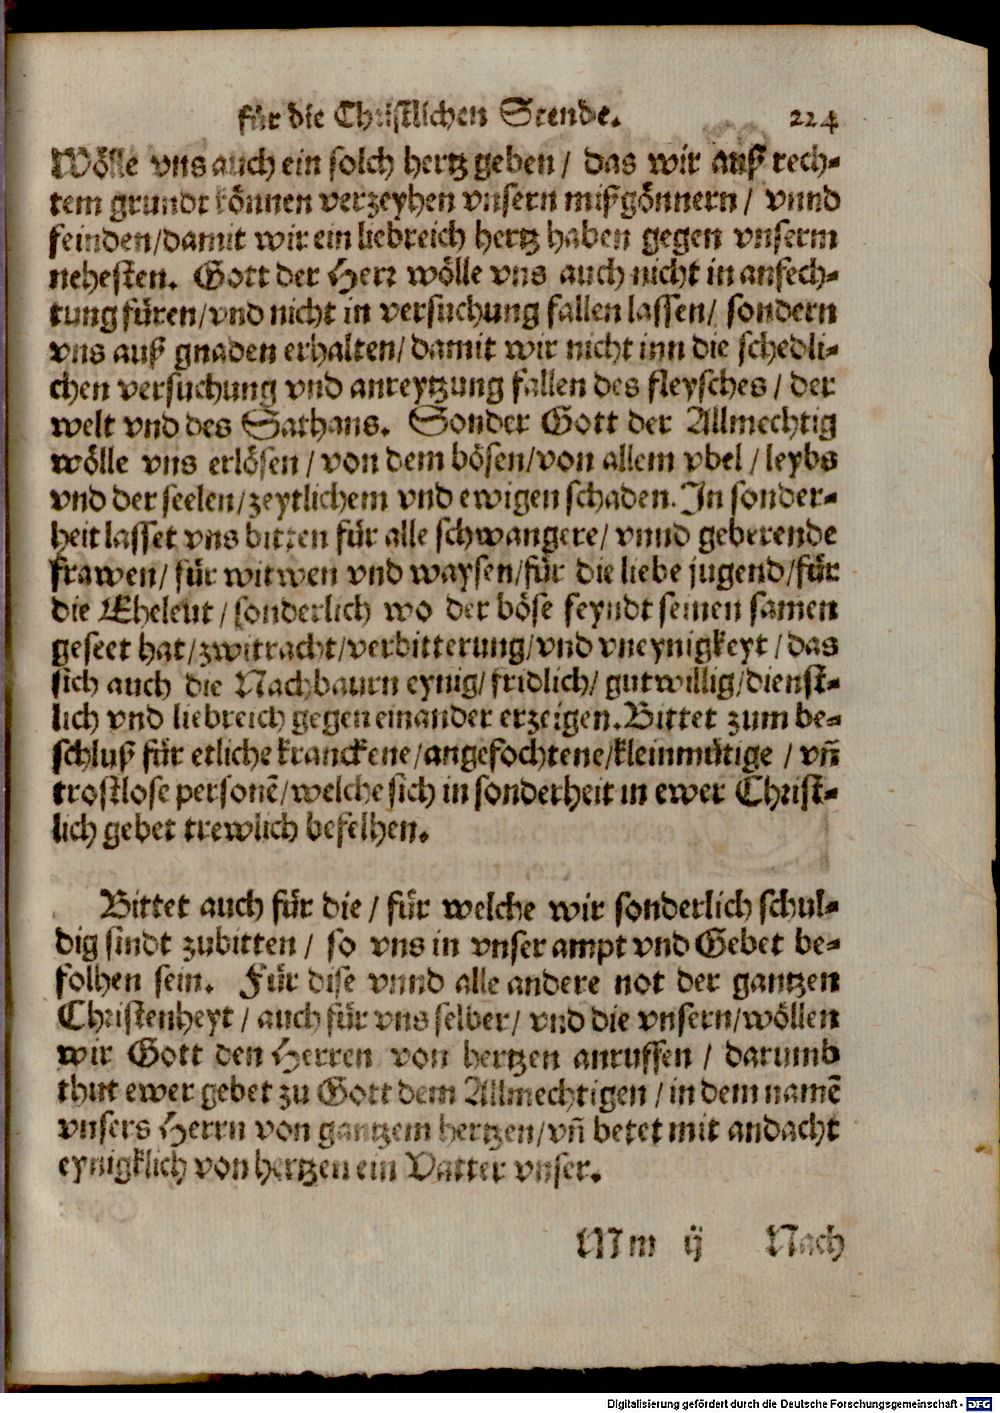 für die Christlichen Stende. 224
Wölle vns auch ein solch hertz geben / das wir auß rech-
tem grundt können verzeyhen vnsern mißgönnern / vnnd
feinden/damit wir ein liebreich hertz haben gegen vnserm
nehesten. Gott der Herr wölle vns auch nicht in anfech-
tung füren/vnd nicht in versuchung fallen lassen/ sondern
vns auß gnaden erhalten/damit wir nicht inn die schedli-
chen versuchung vnd anreytzung fallen des fleysches / der
welt vnd des Sathans. Sonder Gott der Allmechtig
wölle vns erlösen / von dem bösen/von allem vbel / leybs
vnd der seelen/zeytlichem vnd ewigen schaden. In sonder-
heit lasset vns bitten für alle schwangere/ vnnd geberende
frawen/ für witwen vnd waysen/für die liebe jugend/für
die Eheleut / sonderlich wo der böse feyndt seinen samen
geseet hat/zwitracht/verbitterung/vnd vneynigkeyt / das
sich auch die Nachbaurn eynig/ fridlich/ gutwillig/dienst-
lich vnd liebreich gegen einander erzeigen. Bittet zum be-
schluß für etliche kranckene/angefochtene/kleinmütige / vñ
trostlose personẽ/welche sich in sonderheit in ewer Christ-
lich gebet trewlich befelhen.
Bittet auch für die / für welche wir sonderlich schul-
dig sindt zubitten / so vns in vnser ampt vnd Gebet be-
folhen sein. Für dise vnnd alle andere not der gantzen
Christenheyt / auch für vns selber/ vnd die vnsern/wöllen
wir Gott den Herren von hertzen anruffen / darumb
thut ewer gebet zu Gott dem Allmechtigen / in dem namẽ
vnsers Herrn von gantzem hertzen/vñ betet mit andacht
eynigklich von hertzen ein Vatter vnser.
Mm ij Nach
Digitalisierung gefördert durch die Deutsche Forschungsgemeinschaft - DFG